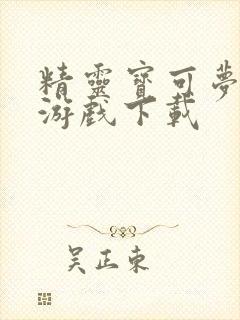 精靈寶可夢
游戲下載
吳正東